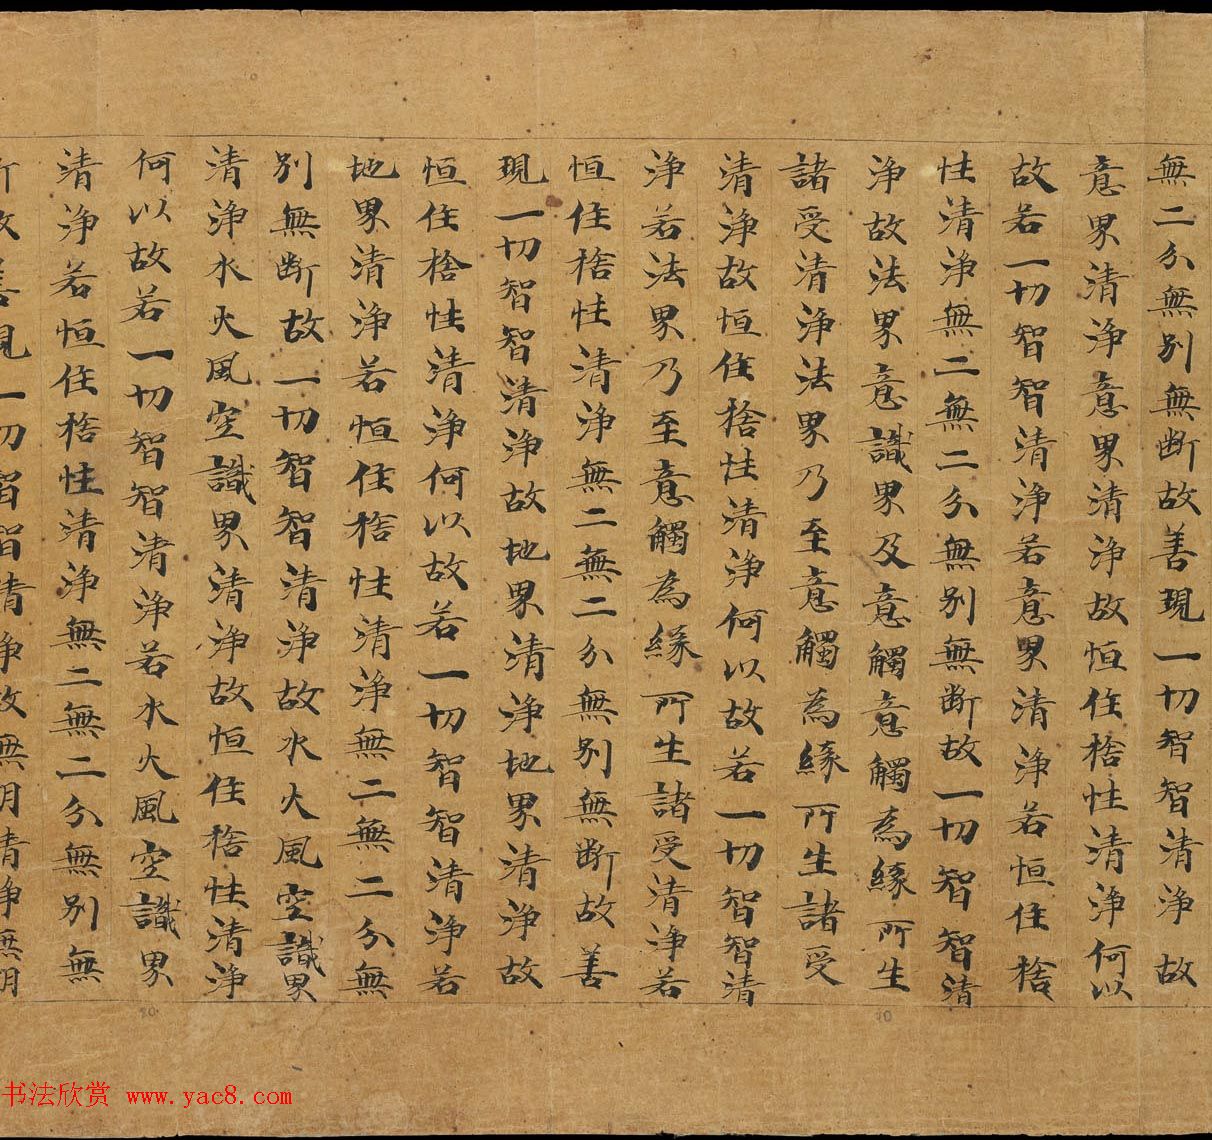 無二分無別無断故善現一切智智清浄故
意界清浄意界清浄故恒住捨性清浄何以
故若一切智智清浄若意界清浄若恒住捨
性清浄無二無二分無別無断故一切智智清
浄故法界意識界及意觸意觸為緣所生
諸受清浄法界乃至意觸為緣所生諸受
清浄故恒住捨性清浄何以故若一切智智清
浄若法界乃至意觸為緣所生諸受清浄若
恒住捨性清浄無二無二分無別無断故善
現一切智智清浄故地界清浄地界清浄故
恒住捨性清浄何以故若一切智智清浄若
地界清浄若恒住捨性清浄無二無二分無
別無断故一切智智清浄故水火風空識界
清浄水火風空識界清浄故恒住捨性清浄
何以故若一切智智清浄若水火風空識界
清浄若恒住捨性清浄無二無二分無別無
断故善現一切智智清浄故無明清浄無明
10
20
书法欣赏 www.yac8.com